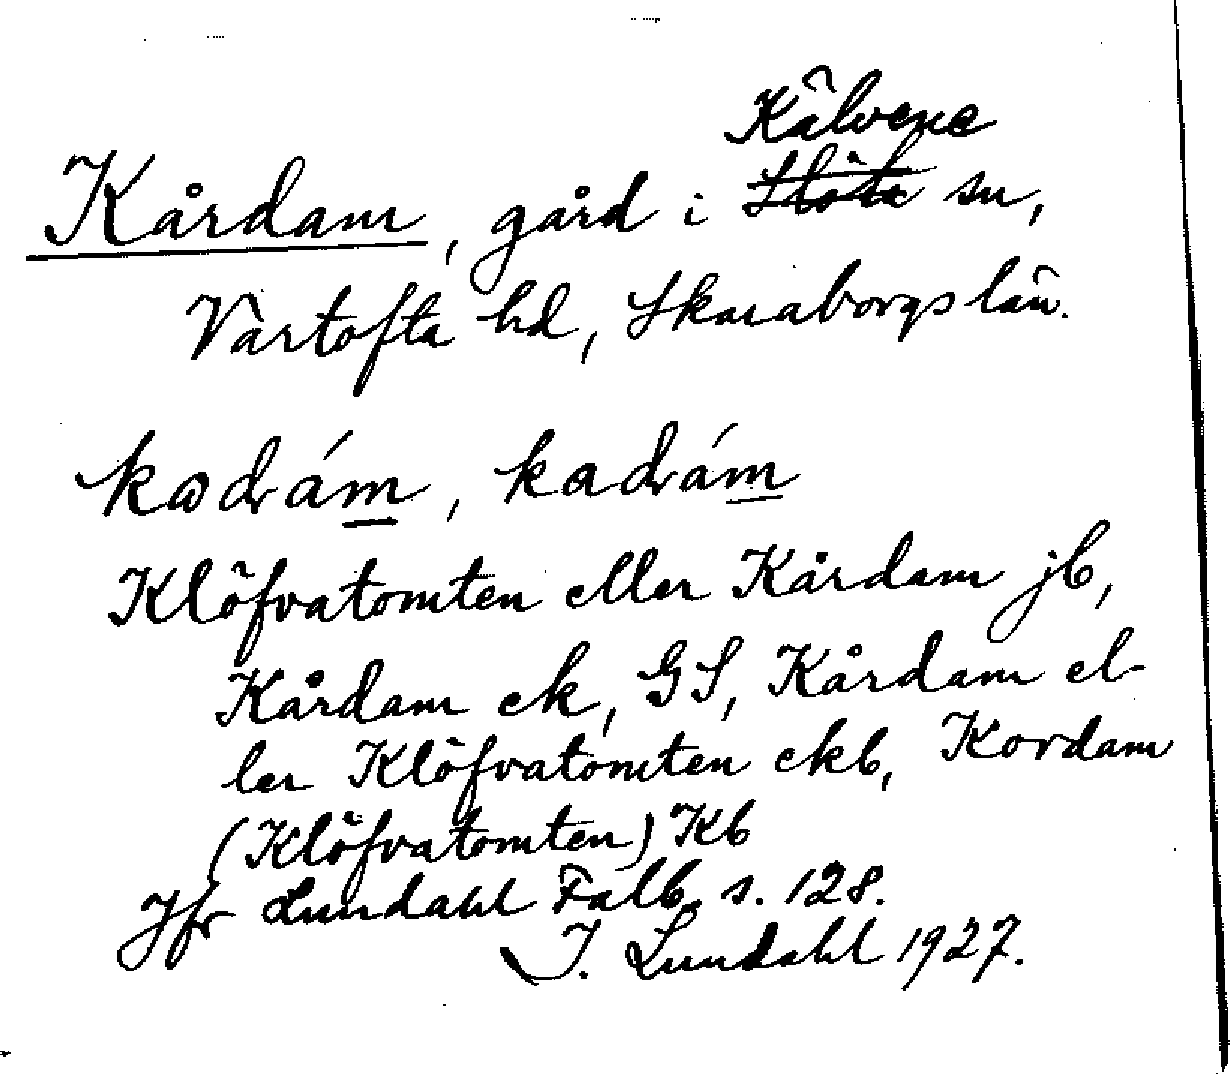 Kälvene
Kårdam, gård i Slöta sn,
Vartofta hd, Skaraborgs län.
kɷdrám, kadrám
Klöfvatomten eller Kårdam jb,
Kårdam ek, GS, Kårdam el-
ler Klöfvatomten ekb, Kordam
(Klöfvatomten) Kb
Jfr Lundahl Falb. s. 128.
I. Lundahl 1927.